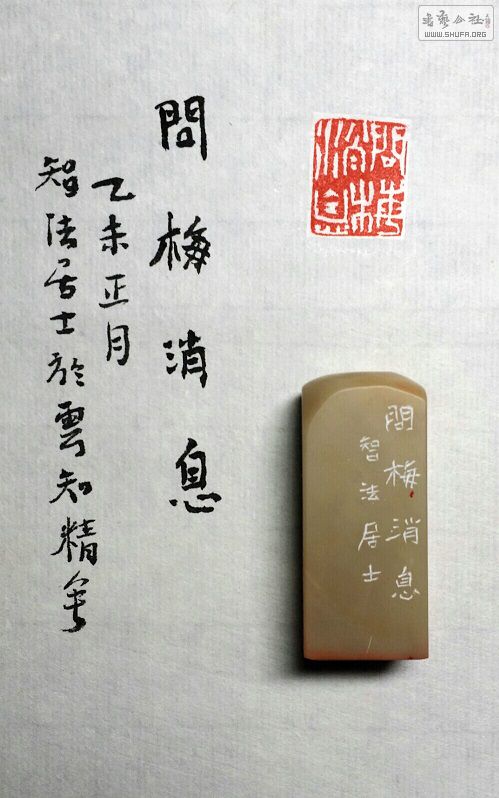 問梅消息
乙未正月
智法居士於雲知精舍
問梅消息
問梅消息
智法居士
書藝公社
WWW.SHUFA.ORG